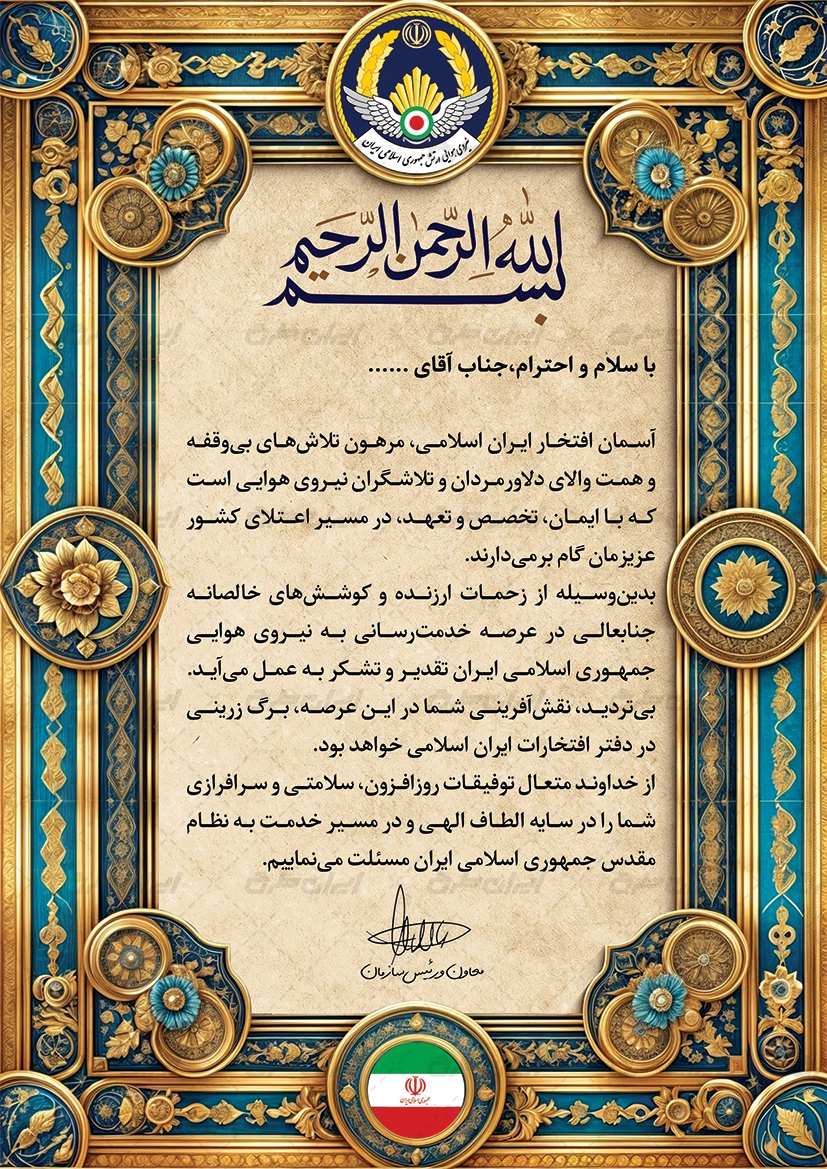 نیروی هوایی ارتش جمهوری اسلامی ایران
بسم الله الرحمن الرحیم
با سلام و احترام،جناب آقای ......
آسمان افتخار ایران اسلامی، مرهون تلاش‌های بی‌وقفه
و همت والای دلاورمردان و تلاشگران نیروی هوایی است
که با ایمان، تخصص و تعهد، در مسیر اعتلای کشور
عزیزمان گام برمی‌دارند.
بدین‌وسیله از زحمات ارزنده و کوشش‌های خالصانه
جنابعالی در عرصه خدمت‌رسانی به نیروی هوایی
جمهوری اسلامی ایران تقدیر و تشکر به عمل می‌آید.
بی‌تردید، نقش‌آفرینی شما در این عرصه، برگ زرینی
در دفتر افتخارات ایران اسلامی خواهد بود.
از خداوند متعال توفیقات روزافزون، سلامتی و سرافرازی
شما را در سایه الطاف الهی و در مسیر خدمت به نظام
مقدس جمهوری اسلامی ایران مسئلت می‌نماییم.
معاون و رئیس سازمان
جمهوری اسلامی ایران